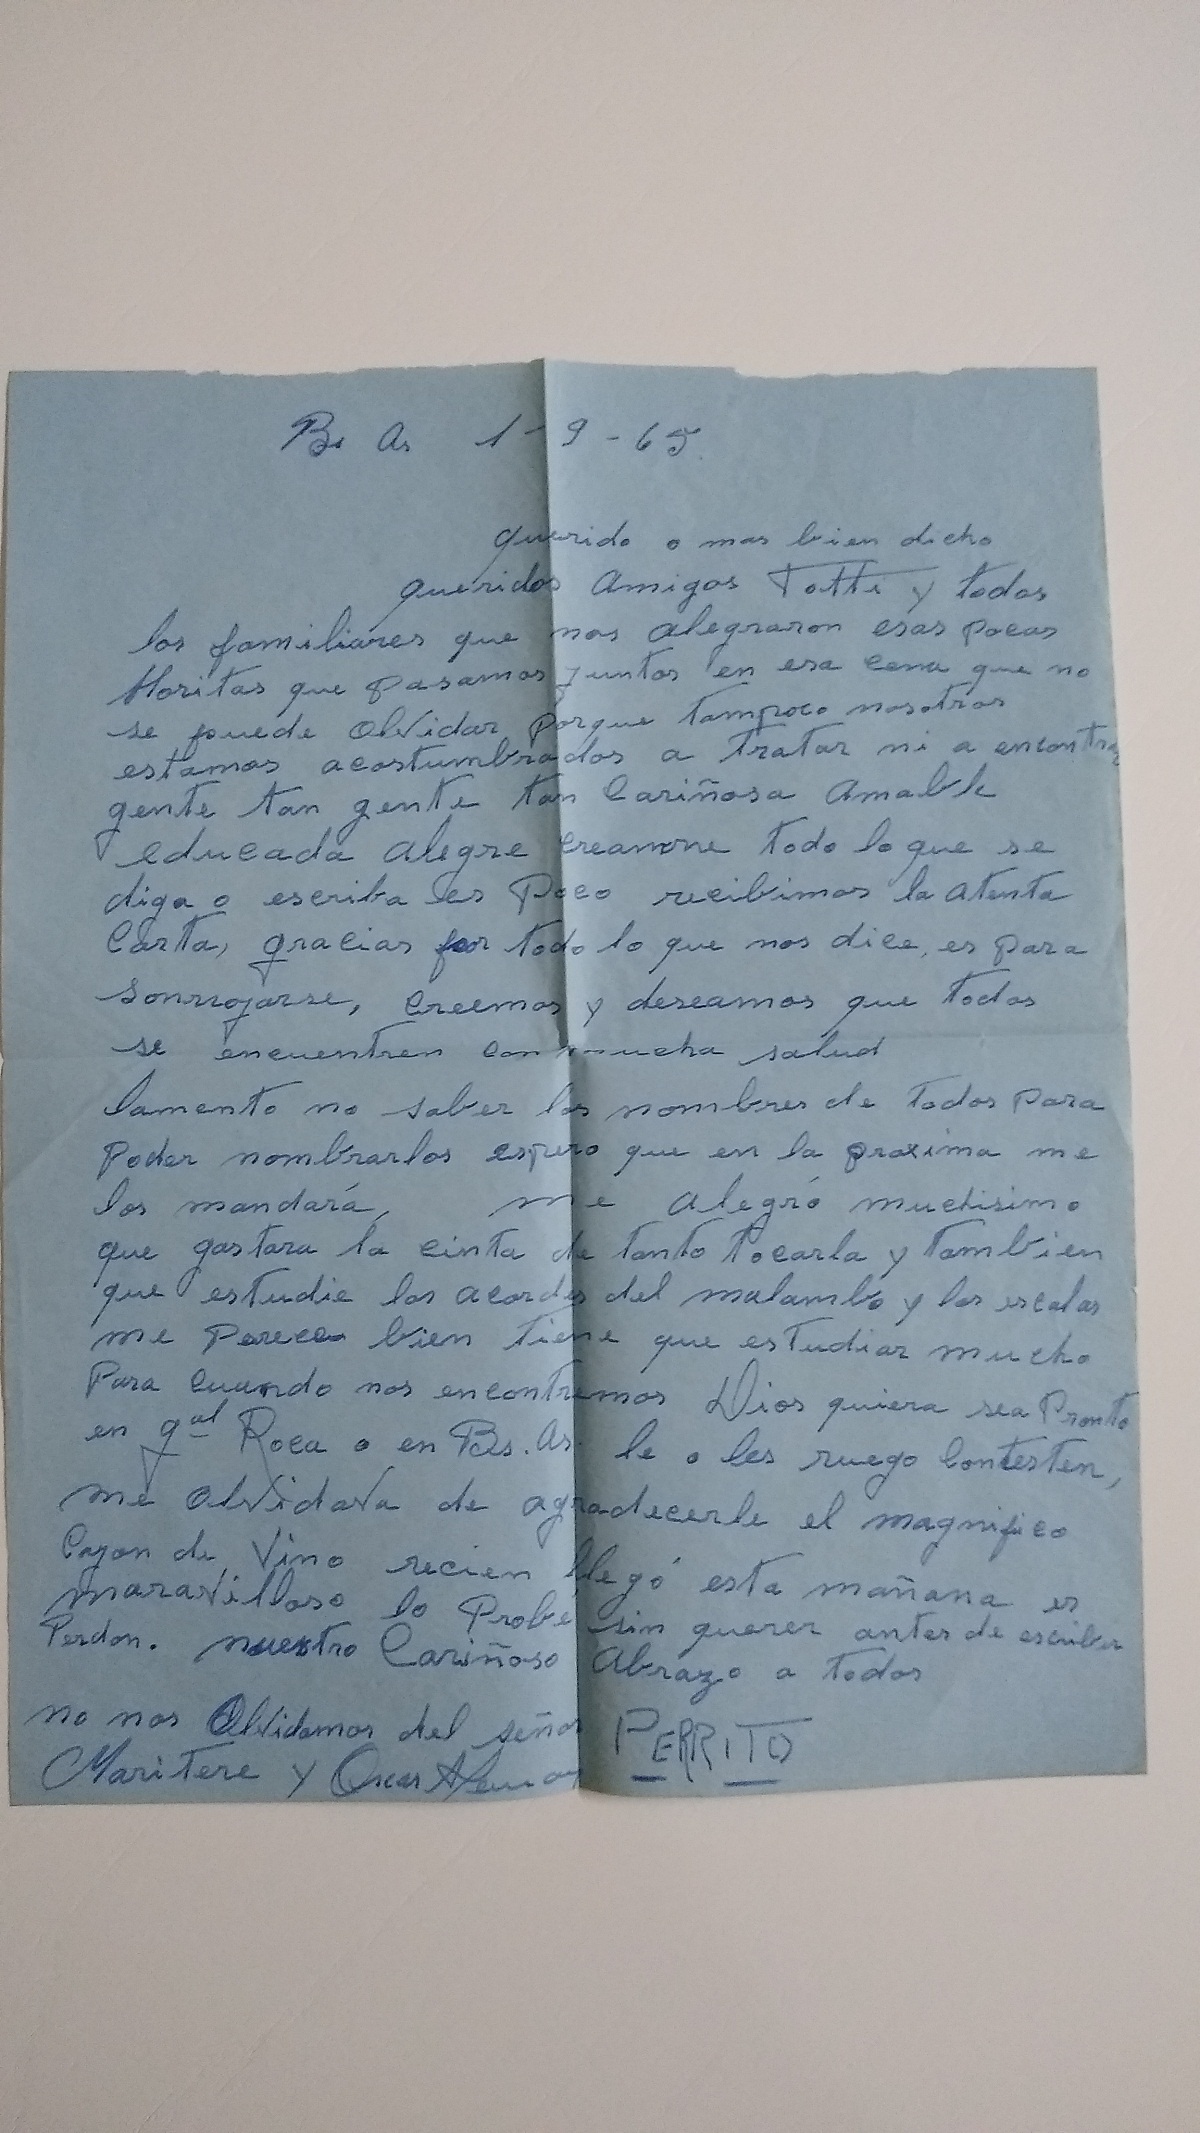 Bs As 1-9-65
querido o mas bien dicho
queridos Amigos Totti y todos
los familiares que nos alegraron esas pocas
Horitas que pasamos juntos en esa cena que no
se puede olvidar porque tampoco nosotros
estamos acostumbrados a tratar ni a encontrar
gente tan gente tan Cariñosa Amable
educada Alegre creanme todo lo que se
diga o escriba es Poco recibimos la atenta
Carta, gracias por todo lo que nos dice, es para
sonrrojarse, creemos y deseamos que todos
se encuentren con mucha salud
lamento no saber los nombres de todos para
poder nombrarlos espero que en la proxima me
los mandará, me alegró muchisimo
que gastara la cinta de tanto tocarla y tambien
que estudie los acordes del malambo y las escalas
me Parece bien tiene que estudiar mucho
Para cuando nos encontremos Dios quiera sea Pronto
en gral Roca o en Bs. As. le o les ruego Contesten,
me olvidava de agradecerle el magnifico
Cajon de Vino recien llegó esta mañana es
maravilloso lo Probé sin querer antes de escribir
Perdon. nuestro Cariñoso Abrazo a todos
no nos Olvidamos del señor PERRITO
Maritere y Oscar Aleman